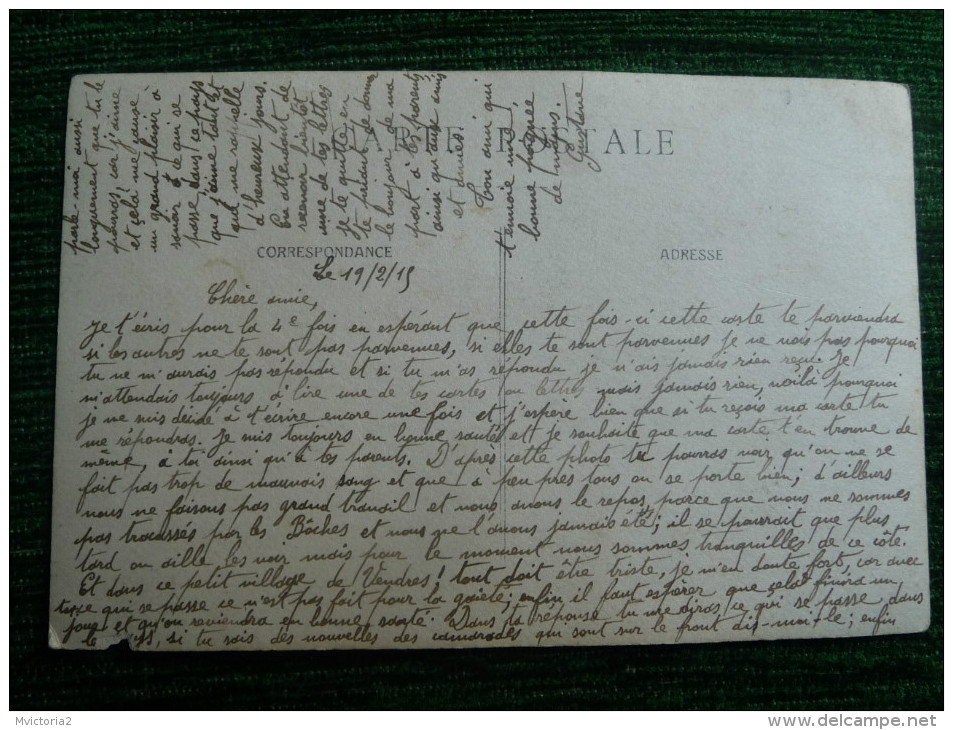 CARTE POSTALE
CORRESPONDANCE
ADRESSE
Le 19/2/15
Chère amie,
Je t'écris pour la 4e fois en espérant que cette fois-ci cette carte te parviendra
si les autres ne te sont pas parvenues, si elles te sont parvenues je ne vois pas pourquoi
tu ne m'aurais pas répondu et si tu m'as répondu je n'ais jamais rien reçu. Je
m'attendais toujours, à lire une de tes cartes ou lettres mais jamais rien, voilà pourquoi
je me suis décidé à t'écrire encore une fois et j'espère bien que si tu reçois ma carte tu
me répondras. Je suis toujours en bonne santé et je souhaite que ma carte t'en trouve de
même, à toi ainsi qu'à tes parents. D'après cette photo tu pourras voir qu'on ne se
fait pas trop de mauvais sang et que à peu près tous on se porte bien; d'ailleurs
nous ne faisons pas grand travail et nous avons le repos, parce que nous ne sommes
pas tracassés par les Bôches et nous ne l'avons jamais été; il se pourrait que plus
tard on aille les voir mais pour le moment nous sommes tranquilles de ce côté.
Et dans ce petit village de Vendres! tout doit être triste, je m'en doute fort, car avec
ce qui se passe ce n'est pas fait pour la gaieté; enfin il faut espérer que çela finira un
jour et qu'on reviendra en bonne santé. Dans ta réponse tu me diras, ce qui se passe dans
le si tu sais des nouvelles des camarades qui sont sur le front dis-moi-le; enfin
parle-moi aussi
longuement que tu le
pourras, car j'aime
et çelà me cause
un grand plaisir à
savoir ce qui se
passe dans ce pays
que j'aime tant et
qui me rappelle
d'heureux jours.
En attendant de
recevoir bientôt
une de tes lettres
je te quitte en
te priant de donner
le bonjour de ma
part à tes parents
ainsi qu'aux amis
et amies.
Ton ami qui
t'envoie une
bonne poignée
de mains.
Gustave
Mvictoria2
delcampe.net